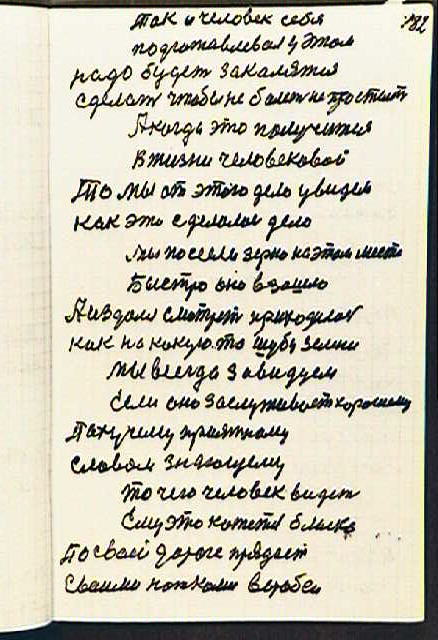 182
Так и человек себя
подготавлевал у этом
надо будет закалятся
сделат чтобы не болет не простыт
А когда это получится
В жизни человековой
То мы от этого дело увидем
как это сделалос дело
мы посеели зерно на этом месте
Быстро оно взошло
А издали смотрет приходилос
как на какую то шубу земни
мы всегда завидуем
Если оно заслуживает хорошому
Пахучему приятному
словам знающему
то чего человек видет
Ему это кажется блиско
По своей дороге прядает
Своими ножками воробей